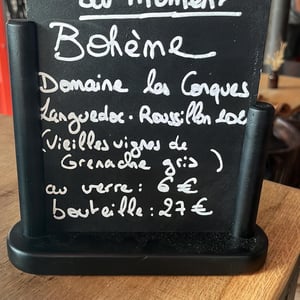 au moment
Bohème
Domaine las Conques
Languedoc. Roussillon
(Vieilles vignes de
Grenache gris )
au verre : 6 €
bouteille : 27 €